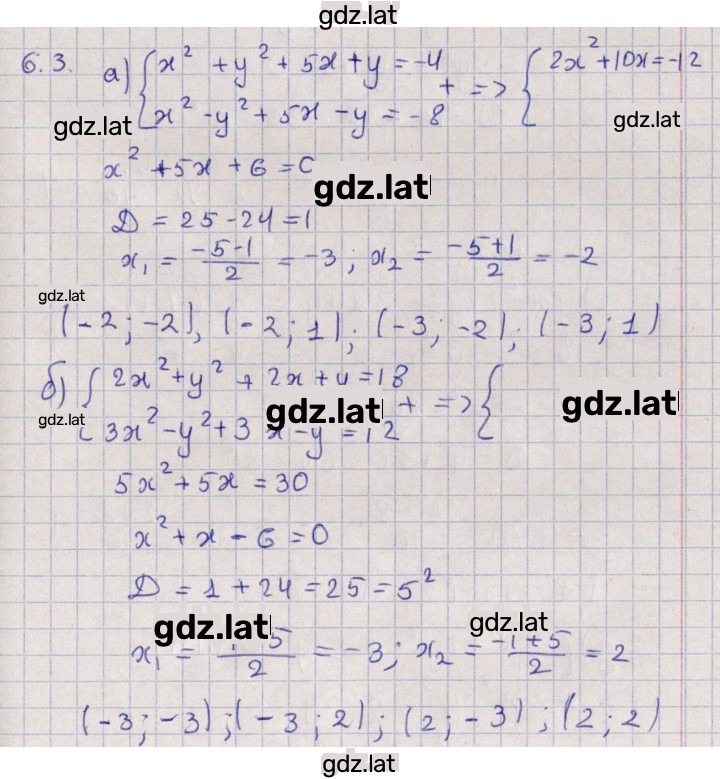 gdz.lat
6.3. а) { x² + y² + 5x + y = -4 + => { 2x² + 10x = -12
x² - y² + 5x - y = -8
gdz.lat gdz.lat
x² + 5x + 6 = 0
gdz.lat
D = 25 - 24 = 1
x₁ = (-5-1)/2 = -3; x₂ = (-5+1)/2 = -2
gdz.lat
(-2; -2), (-2; 1); (-3; -2); (-3; 1)
б) { 2x² + y² + 2x + y = 18
gdz.lat gdz.lat + => { gdz.lat
3x² - y² + 3x - y = 12
5x² + 5x = 30
x² + x - 6 = 0
D = 1 + 24 = 25 = 5²
gdz.lat gdz.lat
x₁ = 5/2 = -3; x₂ = (-1+5)/2 = 2
(-3; -3); (-3; 2); (2; -3); (2; 2)
gdz.lat